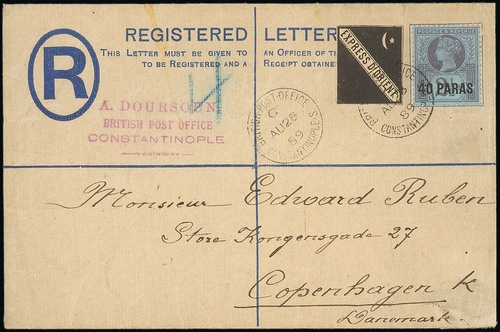 REGISTERED LETTER
THIS LETTER MUST BE GIVEN TO AN OFFICER OF THE
TO BE REGISTERED AND A RECEIPT OBTAINE
R
EXPRESS D'ORIENT
40 PARAS
A. DOURSOUN
BRITISH POST OFFICE
CONSTANTINOPLE
BRITISH POST-OFFICE
C
AU 26
89
CONSTANTINOPLE
89
CONSTANTINOPLE
Monsieur Edward Ruben
Store Kongensgade 27
Copenhagen K
Danemark